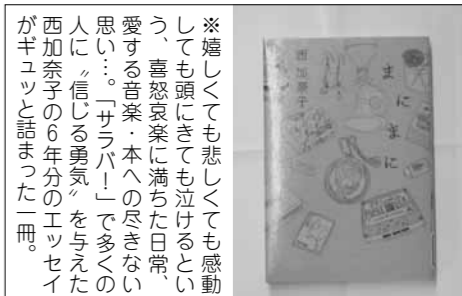 ※嬉しくても悲しくても感動
しても頭にきても泣けるとい
う、喜怒哀楽に満ちた日常、
愛する音楽・本への尽きない
思い…。「サラバ！」で多くの
人に〝信じる勇気〟を与えた
西加奈子の6年分のエッセイ
がギュッと詰まった一冊。
まにまに
西加奈子